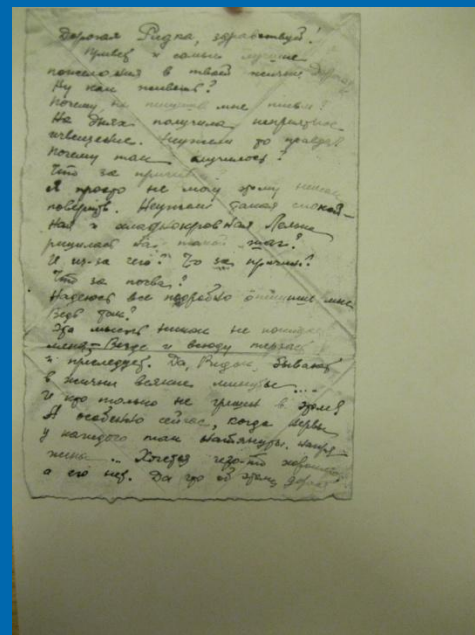 Дорогая Ридна, здравствуй!
Привет и самые лучшие
пожелания в твоей жизни
Ну как живешь?
Почему не пишешь мне письма?
На днях получила неприятное
извещение. Неужели это правда?
Почему так случилось?
Что за причина?
Я просто не могу этому никак
поверить. Неужели такая спокой-
ная и хладнокровная
решилась на такой шаг?
И из-за чего? Что за причина?
Что за почва?
Надеюсь все подробно опишешь мне
Ведь так?
Эта мысль никак не покидает
меня. Везде и всюду терзает
и преследует. Да, бывают
в жизни всякие минуты....
И кто только не грешен в этом?
А особенно сейчас, когда нервы
у каждого так натянуты, напря-
жены... Хочется чего-то хорошего
а его нет. Да что об этом,